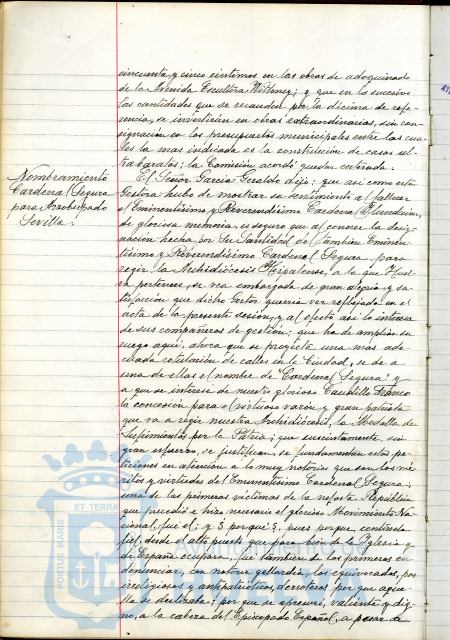 cincuenta y cinco centimos en las obras de adoquinado
de la Avenida Escultora Withney; y que en lo sucesivo
las cantidades que se recauden por la decima de refe-
rencia, se invertirán en obras extraordinarias, sin con-
signación en los presupuestos municipales entre las cua-
les la mas indicada es la constitución de casas ul-
trabaratas; la Comisión acordó quedar enterada.
Nombramiento
Cardenal Segura
para Arzobispado
Sevilla.
El Señor Garcia Geraldo dijo; que asi como esta
Gestora hubo de mostrar su sentimiento al fallecer
el Eminentisimo y Reverendisimo Cardenal Ilundain,
de gloriosa memoria, es seguro que al conocer la desig-
nación hecha por Su Santidad del tambien Eminen-
tisimo y Reverendisimo Cardenal Segura para
regir la Archidiócesis Hispalense, a la que Huel-
va pertenece, se vea embargada de gran alegria y sa-
tisfacción que dicho Gestor queria ver reflejado en el
acta de la presente sesión, y al efecto asi lo interesa
de sus compañeros de gestión; que ha de ampliar su
ruego aqui, ahora que se proyecta una mas ade-
cuada rotulación de calles en la Ciudad, se dé a
una de ellas el nombre de "Cardenal Segura" y
a que se interese de nuestro glorioso Caudillo Franco
la concesión para el virtuoso varón y gran patriota
que va a regir nuestra Archidiócesis, la Medalla de
Sufrimientos por la Patria; que sucintamente, sin
gran esfuerzo, se justifican, se fundamentan estas pe-
ticiones en atención a lo muy notorios que son los mé-
ritos y virtudes del Eminentisimo Cardenal Segura;
una de las primeras victimas de la nefasta República
que precedió e hizo necesario el glorioso Movimiento Na-
cional, fué él; y ¿ porqué ?, pues porque, centinela
fiel, desde el alto puesto que para bien de la Iglesia y
de España ocupara, fué tambien de los primeros en
denunciar, con notoria gallardia, los equivocados, por
irreligiosos y antipatrioticos, derroteros por que aque-
lla se deslizaba; por que se opusiera, valiente y dig-
no, a la cabeza del Episcopado Español, a pesar de
PORTUS MARIS
ET TERRA